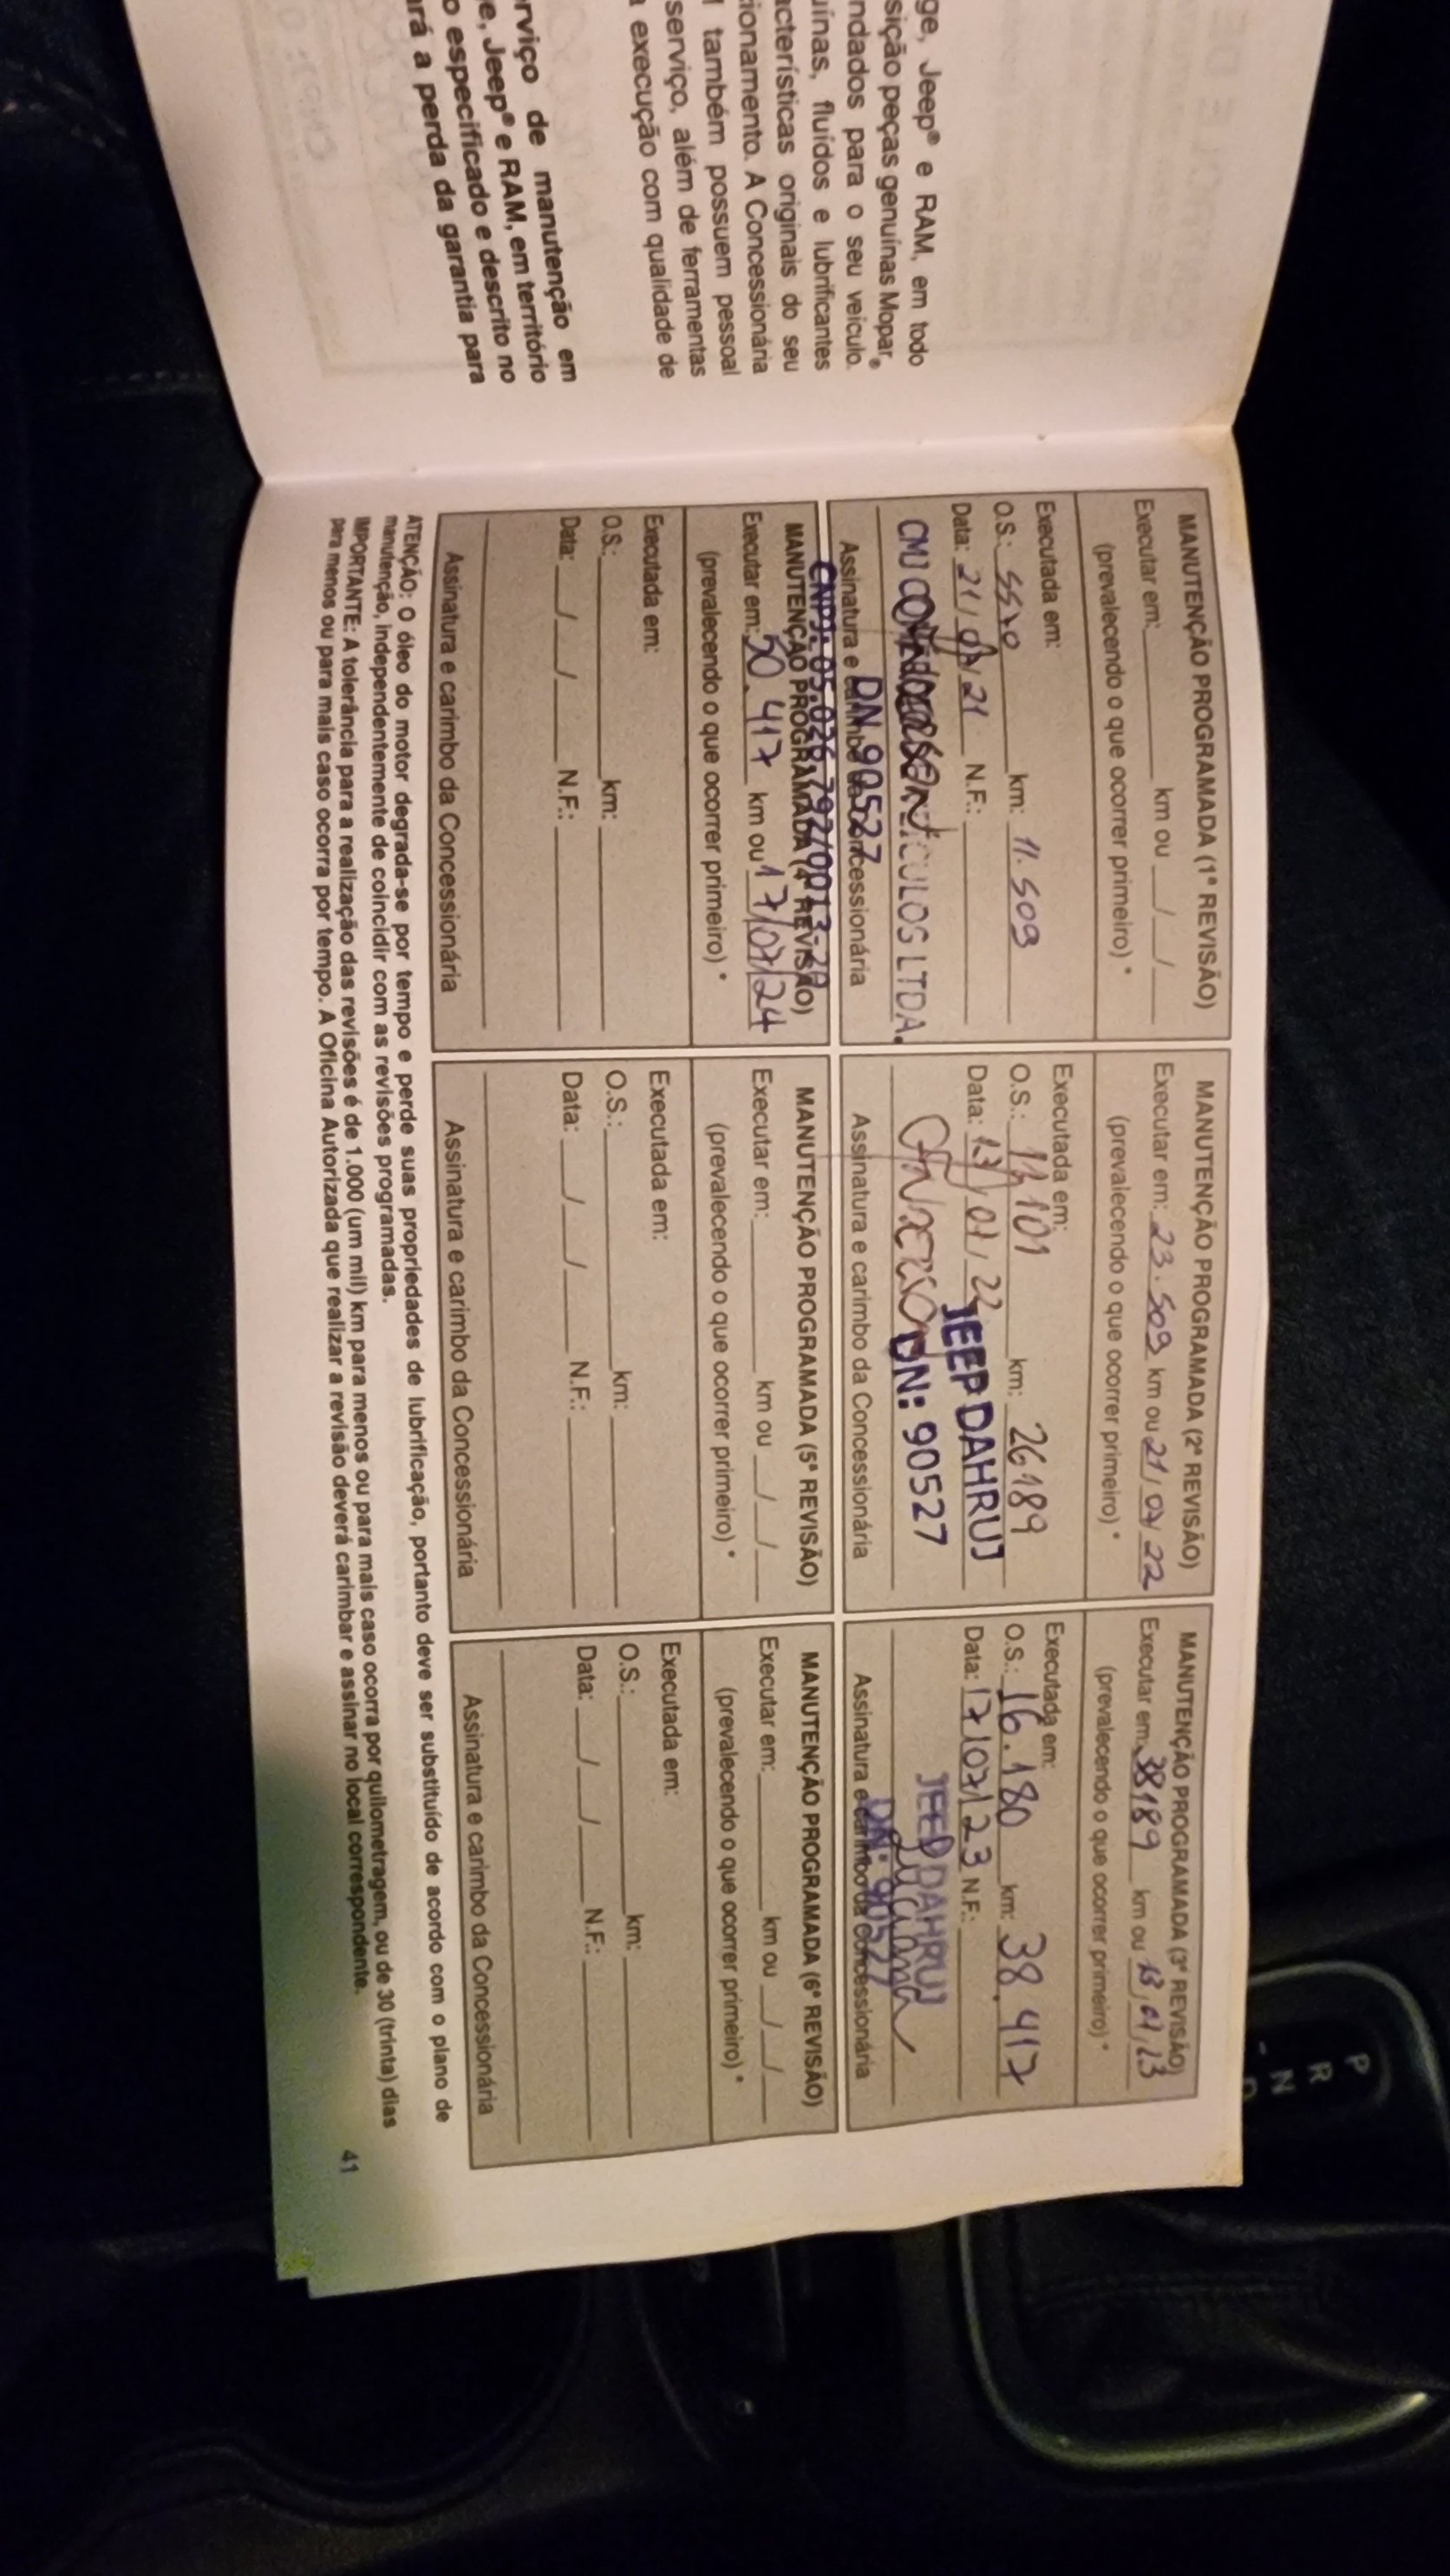 ge, Jeep® e RAM, em todo
sição peças genuínas Mopar®
ndados para o seu veículo.
uínas, fluídos e lubrificantes
acterísticas originais do seu
cionamento. A Concessionária
l também possuem pessoal
serviço, além de ferramentas
a execução com qualidade de
rviço de manutenção em
e, Jeep® e RAM, em território
o especificado e descrito no
ará a perda da garantia para
MANUTENÇÃO PROGRAMADA (1ª REVISÃO)
Executar em: km ou / /
(prevalecendo o que ocorrer primeiro) *
Executada em:
O.S.: km: 11.509
Data: 21/07/21 N.F.:
CMJ VEÍCULOS LTDA.
Assinatura e carimbo da Concessionária
DN 90527
CNPJ: 05.026.792/0013-20
MANUTENÇÃO PROGRAMADA (2ª REVISÃO)
Executar em: 23.509 km ou 21/07/22
(prevalecendo o que ocorrer primeiro) *
Executada em:
O.S.: 11101 km: 26189
Data: 13/07/22
JEEP DAHRUJ
DN: 90527
Assinatura e carimbo da Concessionária
MANUTENÇÃO PROGRAMADA (3ª REVISÃO)
Executar em: 38189 km ou 13/07/23
(prevalecendo o que ocorrer primeiro) *
Executada em:
O.S.: 16.180 km: 38.417
Data: 17/07/23 N.F.:
JEEP DAHRUJ
DN: 90527
Assinatura e carimbo da Concessionária
MANUTENÇÃO PROGRAMADA (4ª REVISÃO)
Executar em: 50.417 km ou 17/07/24
(prevalecendo o que ocorrer primeiro) *
Executada em:
O.S.: km:
Data: / / N.F.:
Assinatura e carimbo da Concessionária
MANUTENÇÃO PROGRAMADA (5ª REVISÃO)
Executar em: km ou / /
(prevalecendo o que ocorrer primeiro) *
Executada em:
O.S.: km:
Data: / / N.F.:
Assinatura e carimbo da Concessionária
MANUTENÇÃO PROGRAMADA (6ª REVISÃO)
Executar em: km ou / /
(prevalecendo o que ocorrer primeiro) *
Executada em:
O.S.: km:
Data: / / N.F.:
Assinatura e carimbo da Concessionária
ATENÇÃO: O óleo do motor degrada-se por tempo e perde suas propriedades de lubrificação, portanto deve ser substituído de acordo com o plano de
manutenção, independentemente de coincidir com as revisões programadas.
IMPORTANTE: A tolerância para a realização das revisões é de 1.000 (um mil) km para menos ou para mais caso ocorra por quilometragem, ou de 30 (trinta) dias
para menos ou para mais caso ocorra por tempo. A Oficina Autorizada que realizar a revisão deverá carimbar e assinar no local correspondente.
41
P
R
N